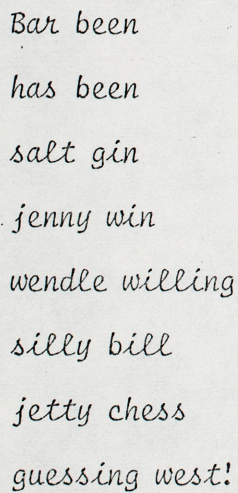 Bar been
has been
salt gin
jenny win
wendle willing
silly bill
jetty chess
guessing west!